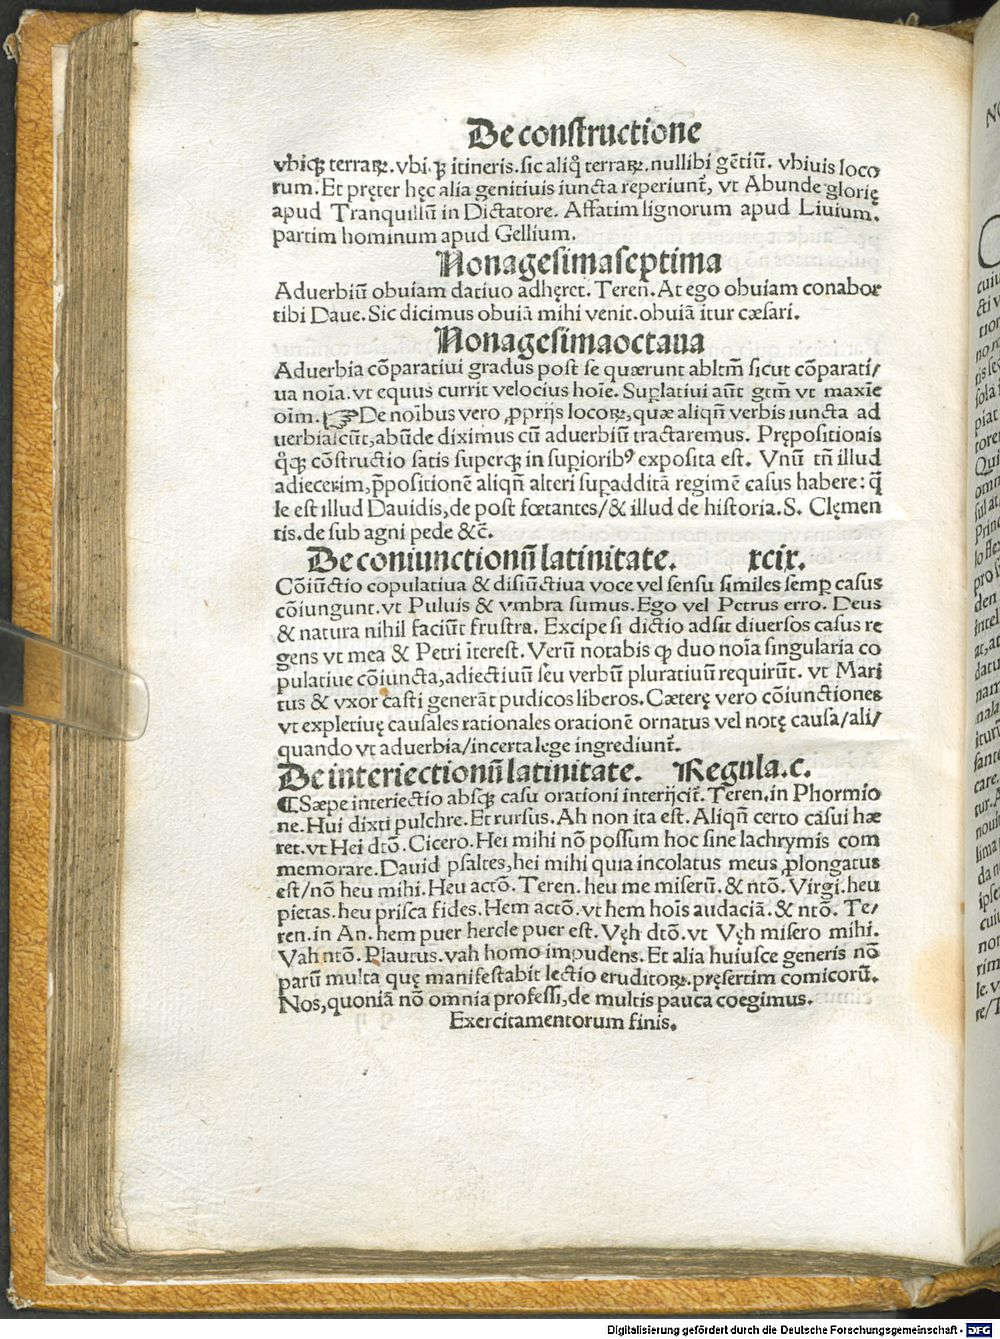 De constructione
vbiqꝫ terraꝝ. vbi.ꝙ itineris. sic aliq̃ terraꝝ. nullibi gẽtiũ. vbiuis loco
rum. Et pręter hęc alia genitiuis iuncta reperiunt᷑, vt Abunde glorię
apud Tranquillũ in Dictatore. Affatim lignorum apud Liuium.
partim hominum apud Gellium.
Nonagesimaseptima
Aduerbiũ obuiam datiuo adhęret. Teren. At ego obuiam conabor
tibi Daue. Sic dicimus obuiã mihi venit. obuiã itur cæsari.
Nonagesimaoctaua
Aduerbia cõparatiui gradus post se quærunt abltm̃ sicut cõparati/
ua noĩa. vt equus currit velocius hoĩe. Suꝑlatiui aũt gtm̃ vt maxĩe
oĩm. ☞ De noĩbus vero ꝓprijs locoꝝ, quæ aliqñ verbis iuncta ad
uerbiascũt, abũde diximus cũ aduerbiũ tractaremus. Prępositionis
q̊qꝫ cõstructio satis superqꝫ in suꝑioribꝰ exposita est. Vnũ tñ illud
adiecerim, p̃positionẽ aliqñ alteri suꝑadditã regimẽ casus habere: q̃
le est illud Dauidis, de post fœtantes/ & illud de historia. S. Clęmen
tis. de sub agni pede &c̃.
De coniunctionũ latinitate. xcix.
Cõiũctio copulatiua & disiũctiua voce vel sensu similes semꝑ casus
cõiungunt. vt Puluis & vmbra sumus. Ego vel Petrus erro. Deus
& natura nihil faciũt frustra. Excipe si dictio adsit diuersos casus re
gens vt mea & Petri ĩterest. Verũ notabis ꝙ duo noĩa singularia co
pulatiue cõiuncta, adiectiuũ seu verbũ pluratiuũ requirũt. vt Mari
tus & vxor casti generãt pudicos liberos. Cæterę vero cõiunctiones
vt expletiuę causales rationales orationẽ ornatus vel notę causa/ ali/
quando vt aduerbia/ incerta lege ingrediunt᷑.
De interiectionũ latinitate. Regula. c.
¶ Sæpe interiectio absqꝫ casu orationi interijcit᷑. Teren. in Phormio
ne. Hui dixti pulchre. Et rursus. Ah non ita est. Aliqñ certo casui hæ
ret. vt Hei dtõ. Cicero. Hei mihi nõ possum hoc sine lachrymis com
memorare. Dauid psaltes, hei mihi quia incolatus meus ꝓlongatus
est/ nõ heu mihi. Heu actõ. Teren. heu me miserũ. & ntõ. Virgi. heu
pietas. heu prisca fides. Hem actõ. vt hem hoĩs audaciã. & ntõ. Te/
ren. in An. hem puer hercle puer est. Vęh dtõ. vt Vęh misero mihi.
Vah ntõ. Plautus. vah homo impudens. Et alia huiusce generis nõ
parũ multa quę manifestabit lectio eruditoꝝ. pręsertim comicorũ.
Nos, quoniã nõ omnia professi, de multis pauca coegimus.
Exercitamentorum finis.
Digitalisierung gefördert durch die Deutsche Forschungsgemeinschaft - DFG